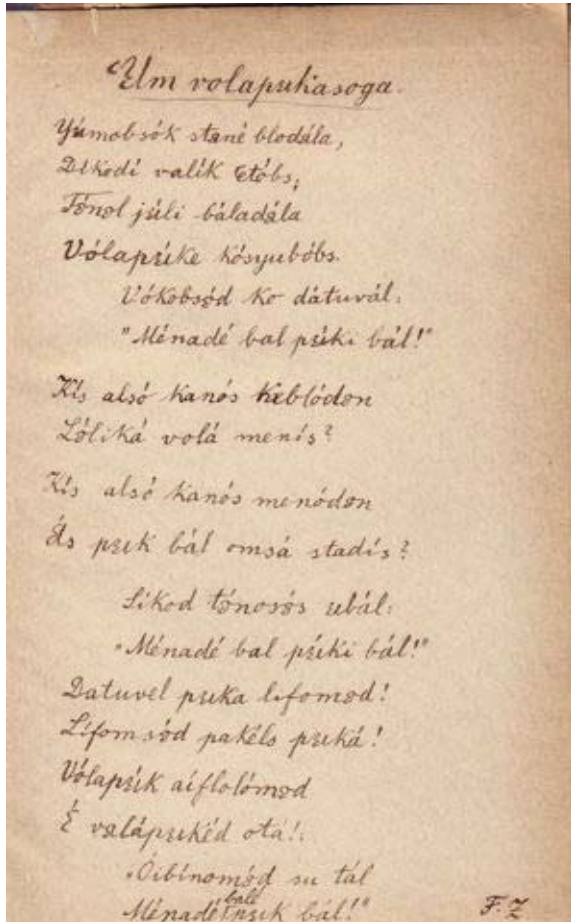 volapꞟkasoga.
Yúmobsók stꞛné blodála,
Díkodi valík etóbs;
Tónꞝl jꞟli báladála
Vólapꞟke kósyubóbs.
Vókobsꞝd ko dátuvál:
"Ménadé bal pꞟki bál!"
Kís alsó kanós keblódꞝn
Lóliká volá menís?
Kís alsó kanós menódꞝn
Ás pꞟk bál omsá stadís?
Sikod tónosós ubál:
"Ménadé bal pꞟki bál!"
Datuvel pꞟka lifomꞝd!
Lífomsꞝd pakéls pꞟká!
Vólapꞟk aíflolómꞝd
É valápꞟkéd otá!:
"Óibínomꞝd su tál
Ménadé balé pꞟk bál!" F. Z